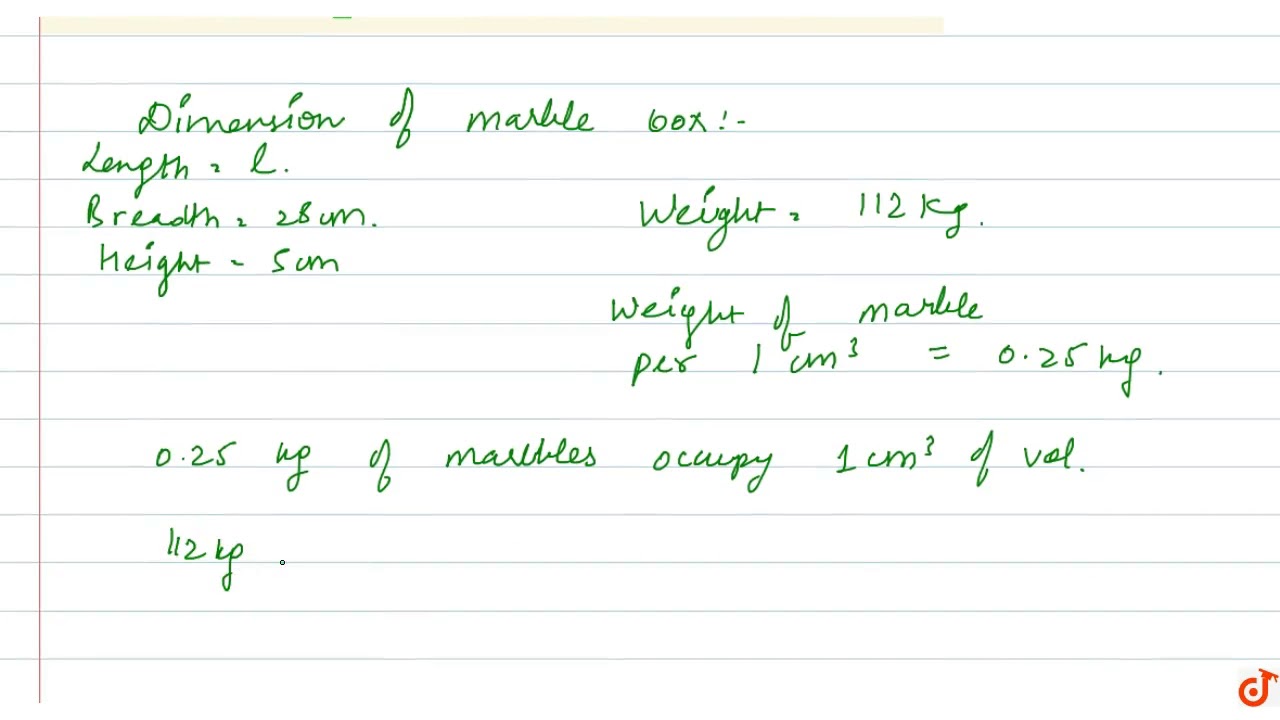 Dimension of marble box :-
Length = l.
Breadth = 28 cm.
Weight = 112 kg.
Height = 5 cm
Weight of marble
per 1 cm³ = 0.25 kg.
0.25 kg of marbles occupy 1 cm³ of vol.
112 kg